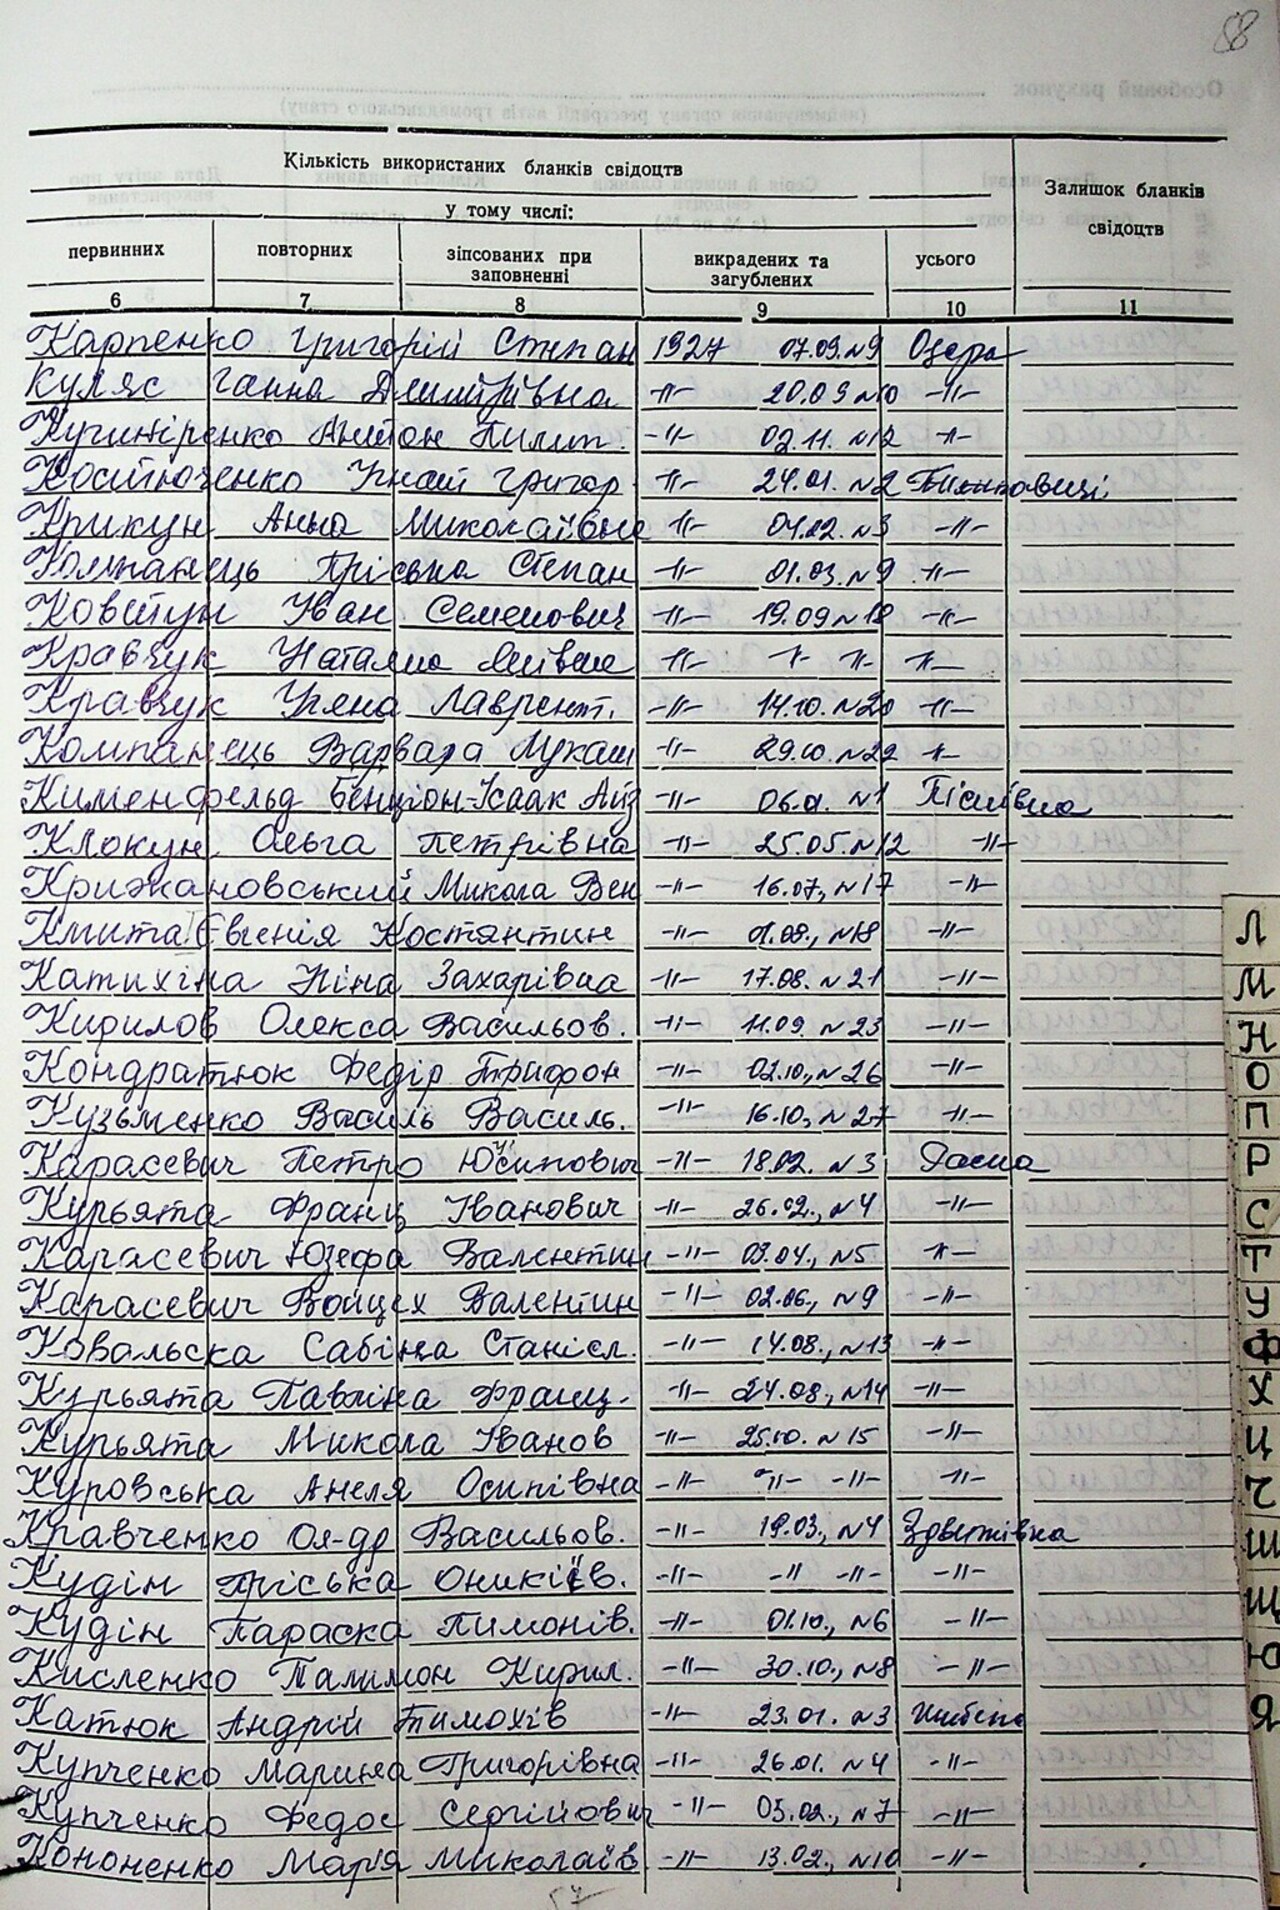 58
Кількість використаних бланків свідоцтв
Залишок бланків свідоцтв
у тому числі:
первинних повторних зіпсованих при заповненні викрадених та загублених усього
6 7 8 9 10 11
Карпенко Григорій Степан 1927 07.09.N9 Озера
Куляс Ганна Дмитрівна -"- 20.09 N10 -"-
Кучиніренко Антон Пилип. -"- 02.11. N12 -"-
Костюченко Гнат Григор -"- 24.01. N2
Крикун Анна Миколаївна -"- 04.02. N3 -"-
Компанець Пріська Степан -"- 01.03. N9 -"-
Ковтун Іван Семенович -"- 19.09 N18 -"-
Кравчук Наталка -"- -"- -"- -"-
Кравчук Уляна Лаврент. -"- 14.10. N20 -"-
Компанець Варвара Лукаш -"- 29.10. N22 -"-
Кименфельд Бенцион-Ісаак Айз -"- 06.01. N1 Пісківка
Клокун Ольга Петрівна -"- 25.05. N12 -"-
Крижановський Микола Вен -"- 16.07., N17 -"-
Кмита Євгенія Костянтин -"- 01.08., N18 -"-
Катихіна Ніна Захарівна -"- 17.08. N21 -"-
Кирилов Олекса Васильов. -"- 11.09. N23 -"-
Кондратюк Федір Трифон -"- 02.10., N26 -"-
Кузьменко Василь Василь. -"- 16.10, N27 -"-
Карасевич Петро -"- 18.02. N3 Расна
Курьята Франц Іванович -"- 26.02., N4 -"-
Карасевич Юзефа Валентин -"- 03.04., N5 -"-
Карасевич Войцех Валентин -"- 02.06., N9 -"-
Ковальска Сабіна Станісл. -"- 14.08., N13 -"-
Курьята Павліна Франц. -"- 24.08., N14 -"-
Курьята Микола Іванов -"- 25.10. N15 -"-
Куровська Анеля Осипівна -"- -"- -"- -"-
Кравченко Ол-др Васильов. -"- 19.03., N4 Здвижівка
Кудін Пріська Оникіїв. -"- -"- -"- -"-
Кудін Параска Пимонів. -"- 01.10., N6 -"-
Кисленко Палимон Кирил. -"- 30.10., N8 -"-
Катюк Андрій Тимохів -"- 23.01. N3 Шибене
Купченко Марина Григорівна -"- 26.01. N4 -"-
Купченко Федос Сергійович -"- 05.02., N7 -"-
Кононенко Марія Миколаїв -"- 13.02., N10 -"-
Л
М
Н
О
П
Р
С
Т
У
Ф
Х
Ц
Ч
Ш
Щ
Ю
Я